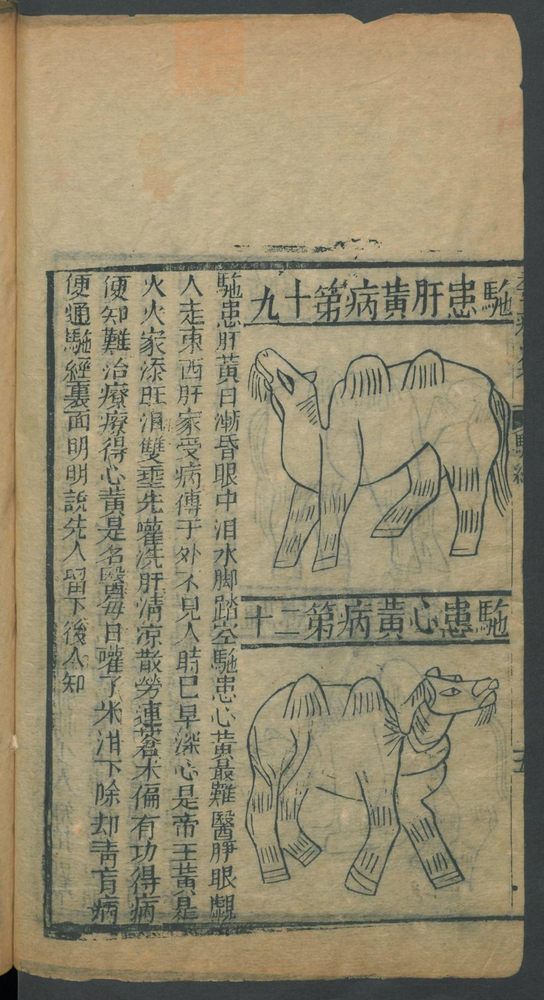 駞患肝黄病第十九
駞患心黄病第二十
駞患肝黄日漸昏眼中泪水脚踏空駞患心黄最難醫睁眼覷
人走東西肝家受病傳于外不見人時巳早深心是帝王黄是
火火家添旺泪雙垂先嚾洗肝清凉散勞連蒼术偏有功得病
便知難治療療得心黄是名醫每日嚾了米泔下除却青盲病
便通駞經裏面明明說先人留下後人知